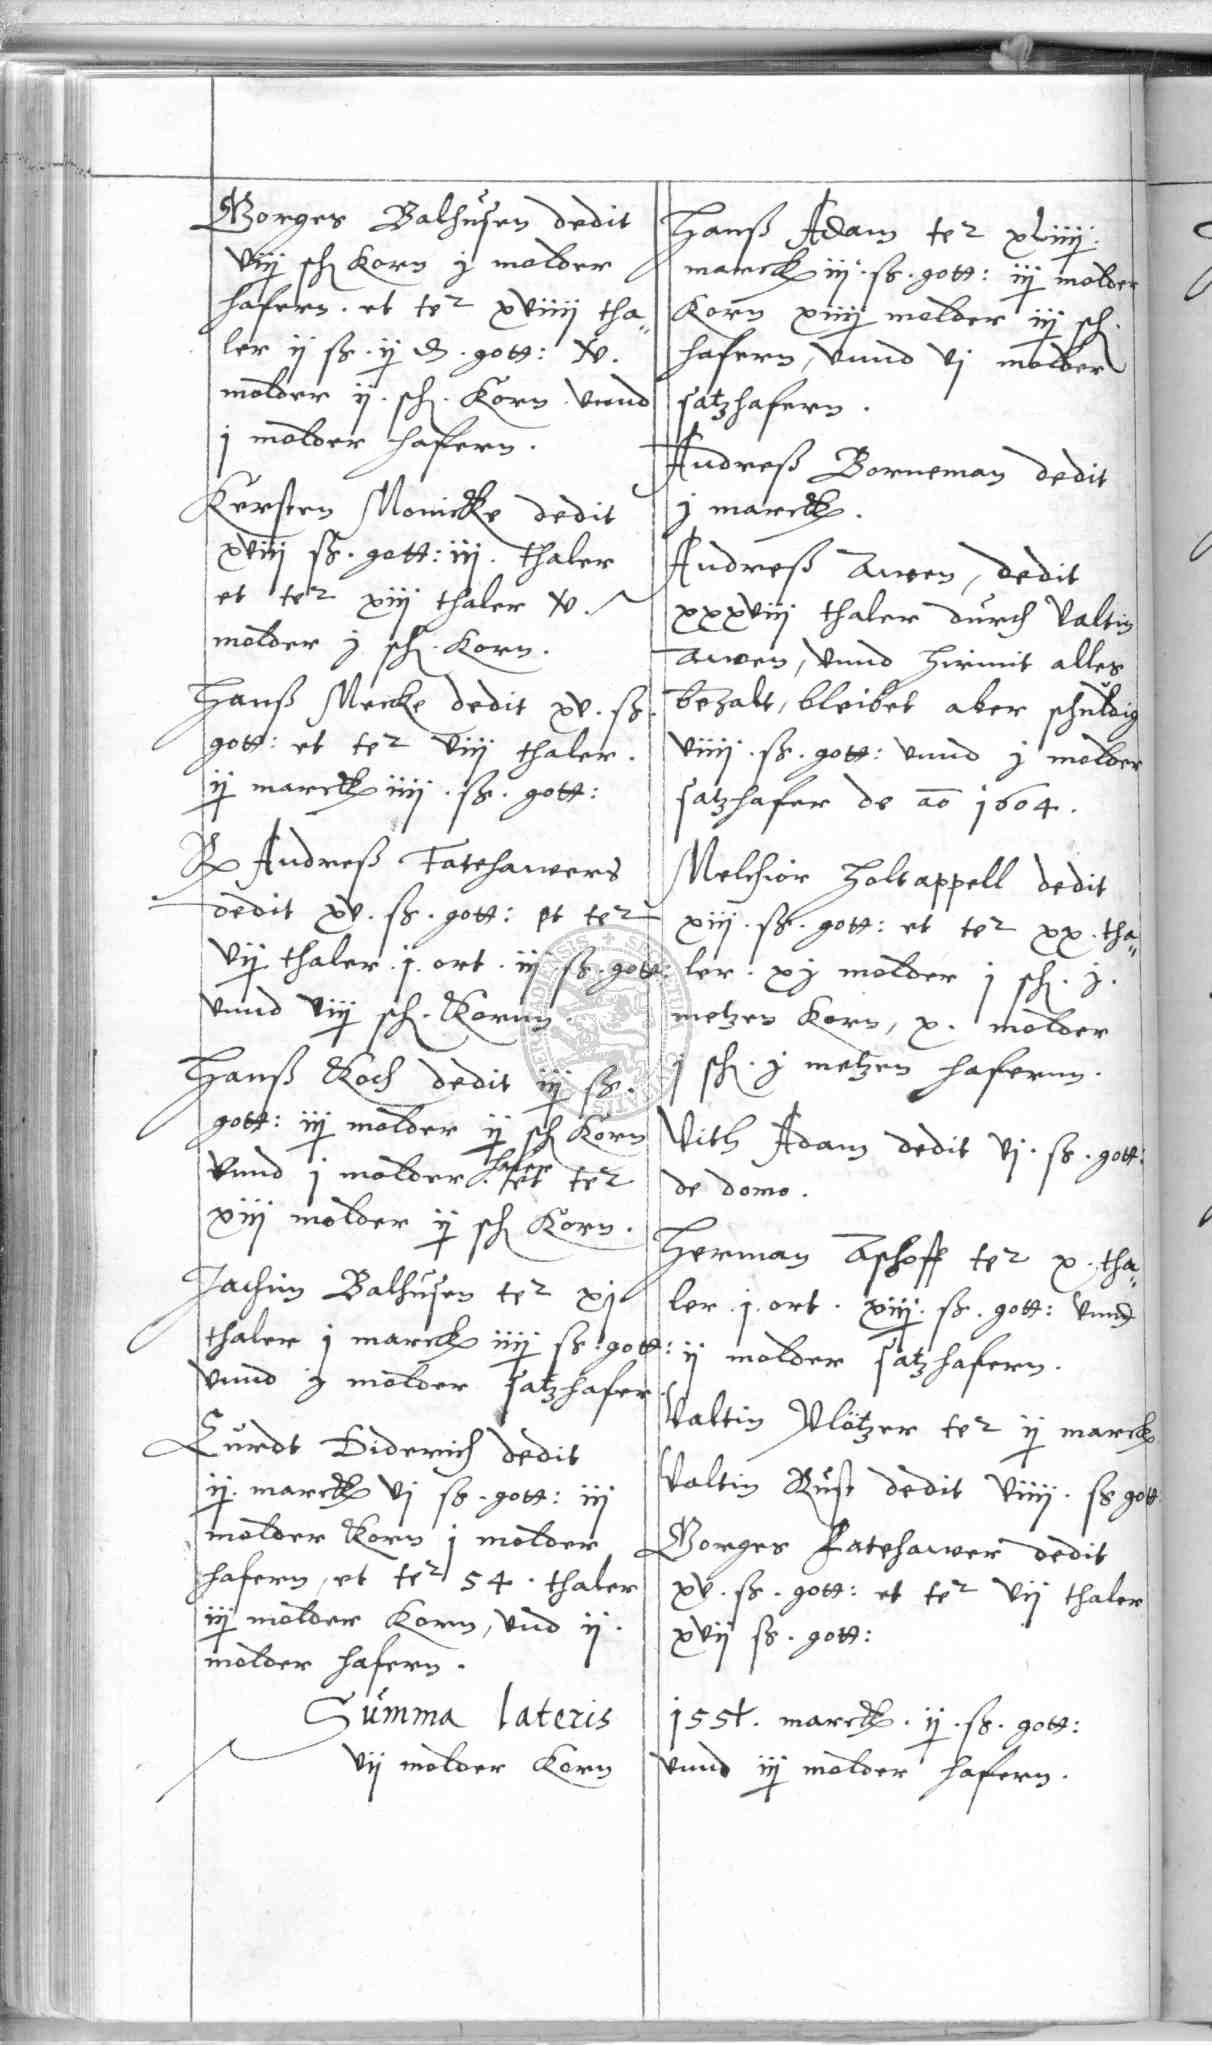 Gorges Balhusen dedit
viij sch Korn ij molder
hafern. et ter xviiij tha„
ler ij ß. ij ₰. gott: xv.
molder ij. sch. Korn. vnnd
j molder hafern.
Kersten Monicke dedit
xviij ß. gott: iij. thaler
et ter xiij thaler xv.
molder ij sch. Korn.
Hanß Mecke dedit xv. ß.
gott: et ter viij thaler.
ij marck iiij. ß. gott:
Andreß Tatehawers
dedit xv. ß. gott: et ter
vij thaler. j. ort. iij ß. gott:
vnnd viij sch. Kornn.
Hanß Koch dedit iij ß.
gott: iij molder ij sch Korn
vnnd j molder hafer. et ter
xiij molder ij sch Korn.
Jachim Balhusen ter xj
thaler j marck iiij ß: gott:
vnnd ij molder satzhafer.
Curdt Diderich dedit
ij. marck vj ß. gott: iij
molder Korn j molder
hafern, et ter 54. thaler
iij molder Korn, vnd ij.
molder hafern.
Summa lateris
vij molder Korn
Hanß Adam ter xliiij:
marck iij. ß. gott: iij molder
Korn xiiij molder iij sch.
hafern, vnnd vj molder
satzhafern.
Andreß Borneman dedit
ij marck.
Andreß Awen, dedit
xxxviij thaler durch Valtin
Awen, vnnd hirmit alles
bezalt, bleibet aber schuldig
viiij. ß. gott: vnnd ij molder
satzhafer de ao 1604.
Melchior Holtappell dedit
xiij. ß. gott: et ter xx. tha„
ler. xj molder j sch. ij.
metzen Korn, x. molder
j sch. ij metzen hafernn.
Vith Adam dedit vj. ß. gott:
de domo.
Herman Aschoff ter x. tha„
ler. j. ort. xiij. ß. gott: vnnd
ij molder satzhafern.
Valtin Plötzer ter ij marck
Valtin Rust dedit viiij. ß gott
Gorges Tatehawer dedit
xv. ß. gott: et ter vij thaler
xvij ß. gott:
155½. marck. ij. ß. gott:
vnnd iij molder hafern.